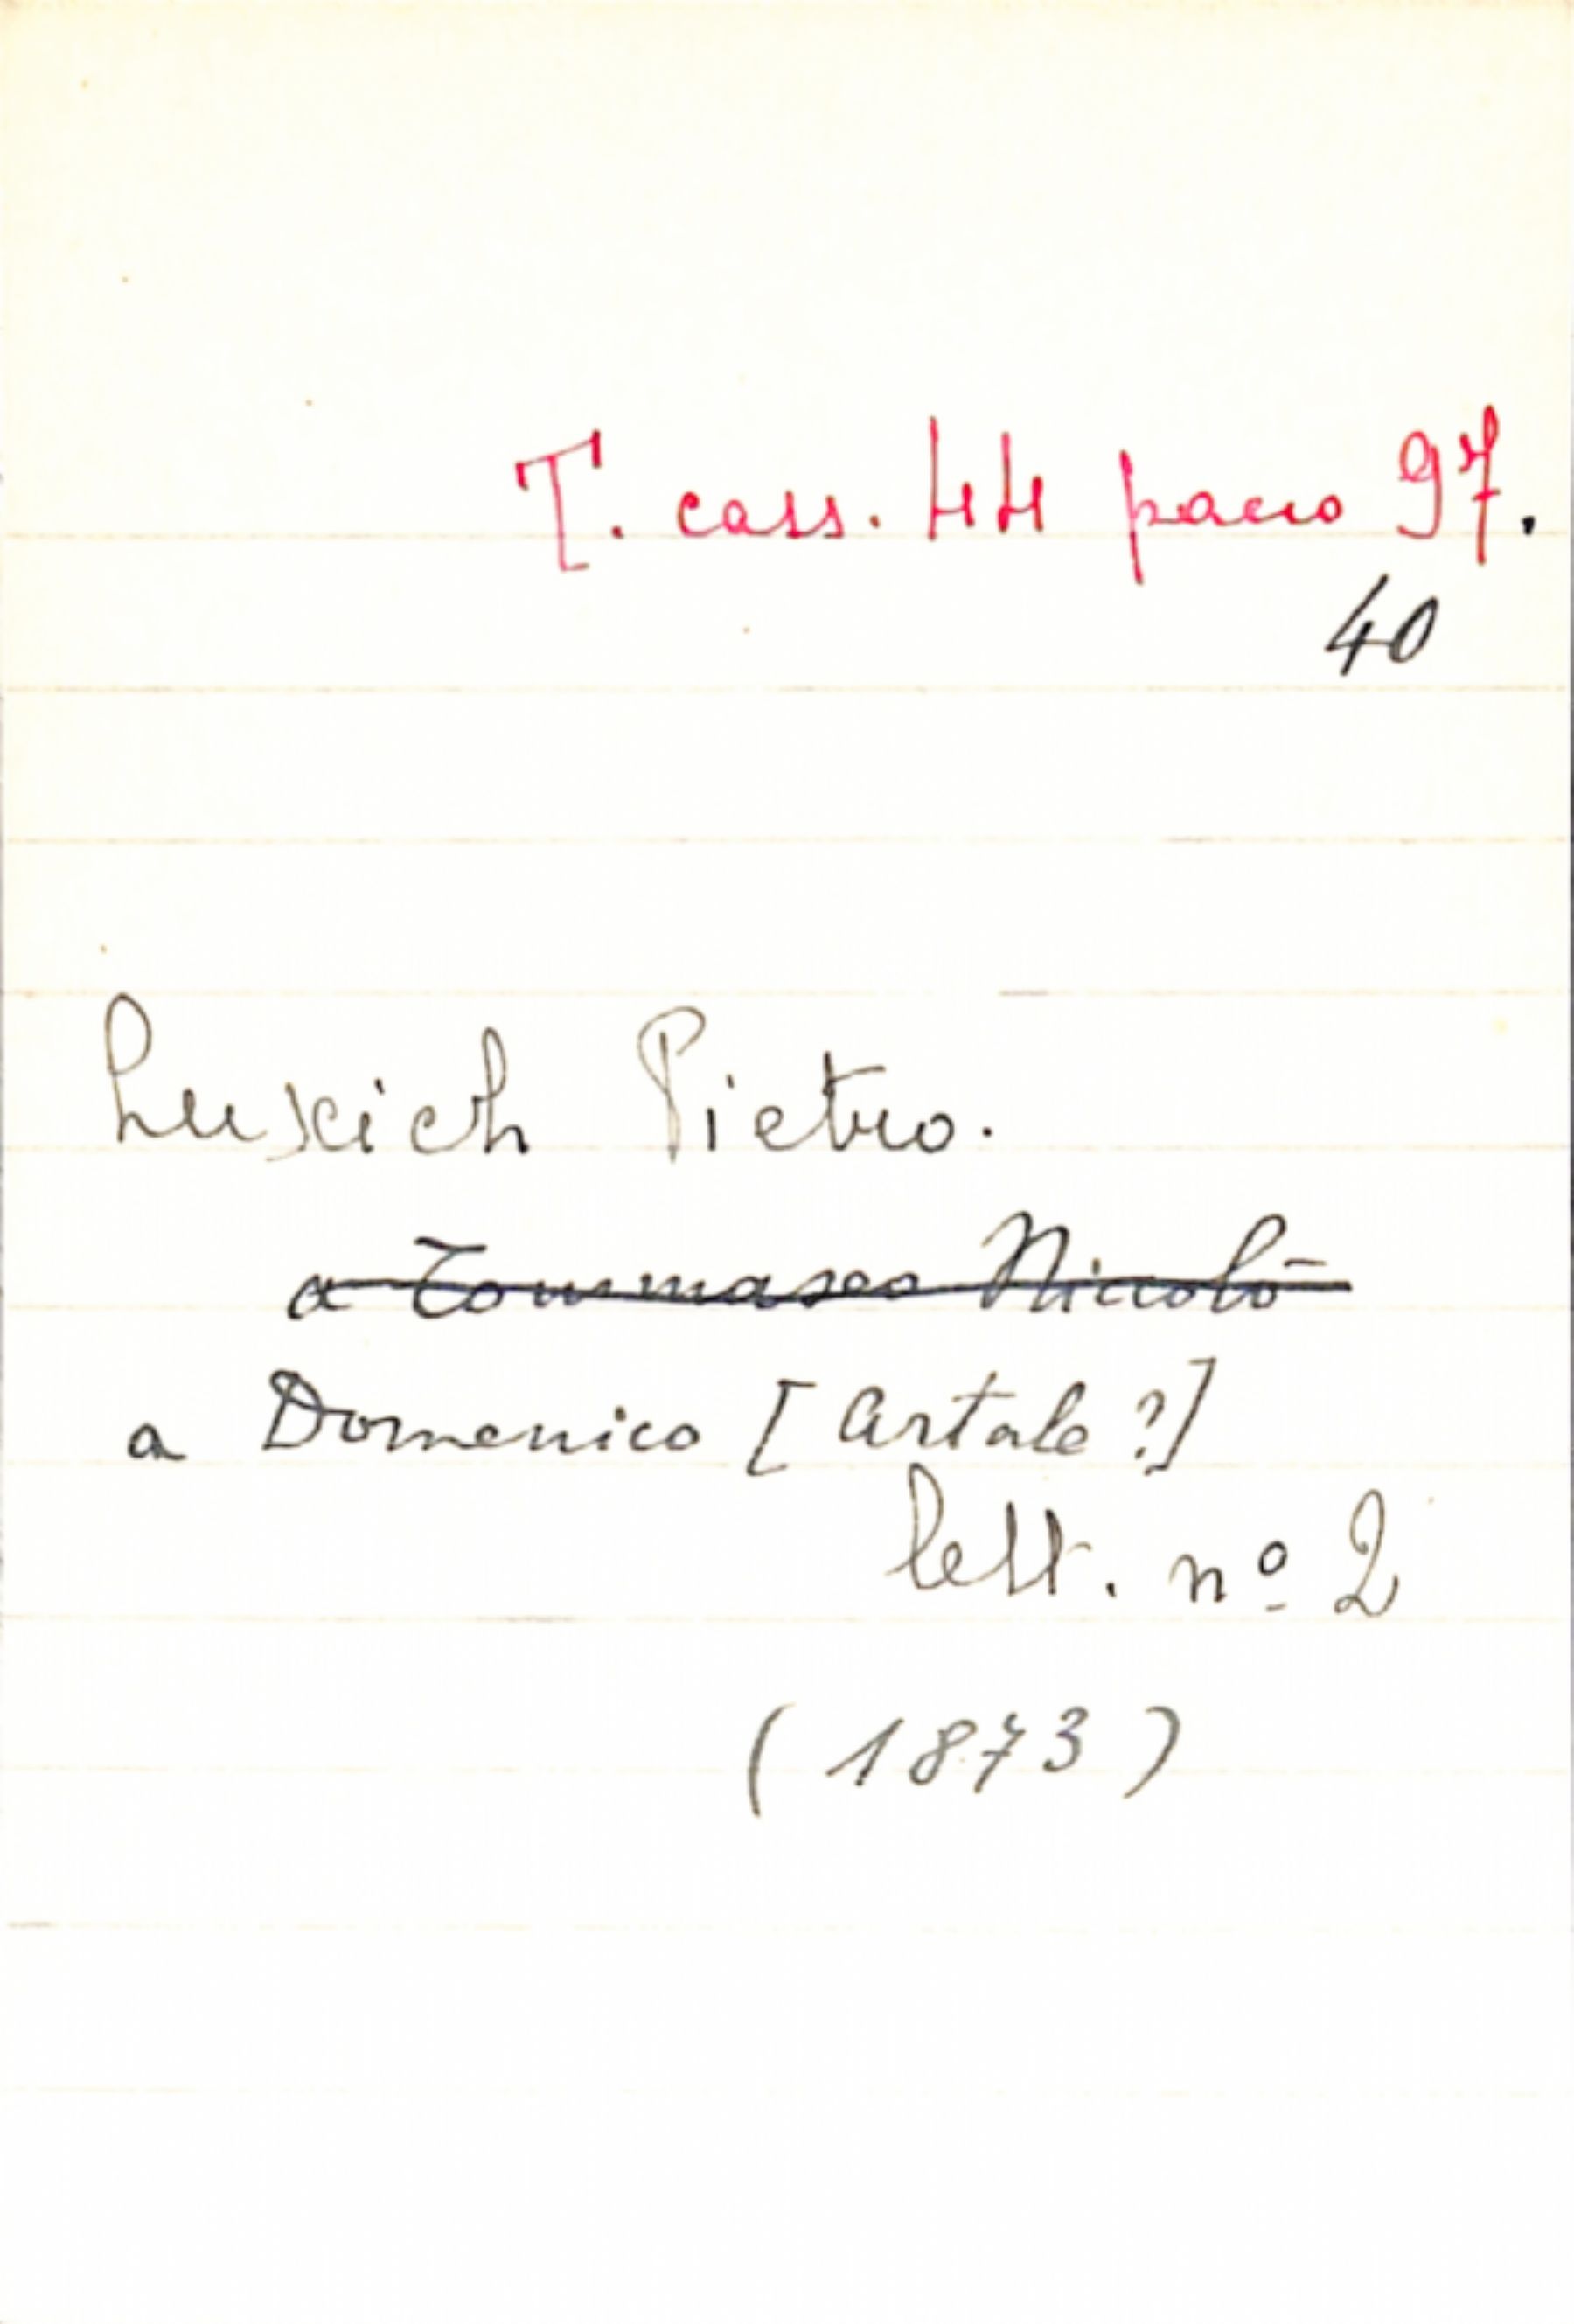 T. cass. 44 pacco 97.
40
Luxich Pietro.
a Tommaseo Niccolò
a Domenico [Artale?]
lett. nº 2
(1873)